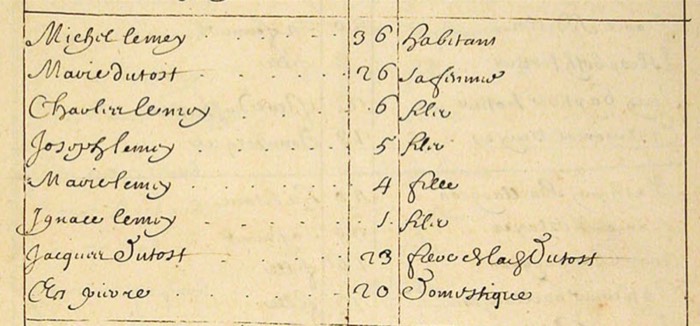 Michel lemey 36 habitant
Marie dutost 26 sa femme
Charles lemoy 6 filz
Joseph lemoy 5 filz
Marie lemoy 4 fille
Ignace lemoy 1 filz
Jacques Dutost 23 frere de lad Dutost
pierre 20 Domestique